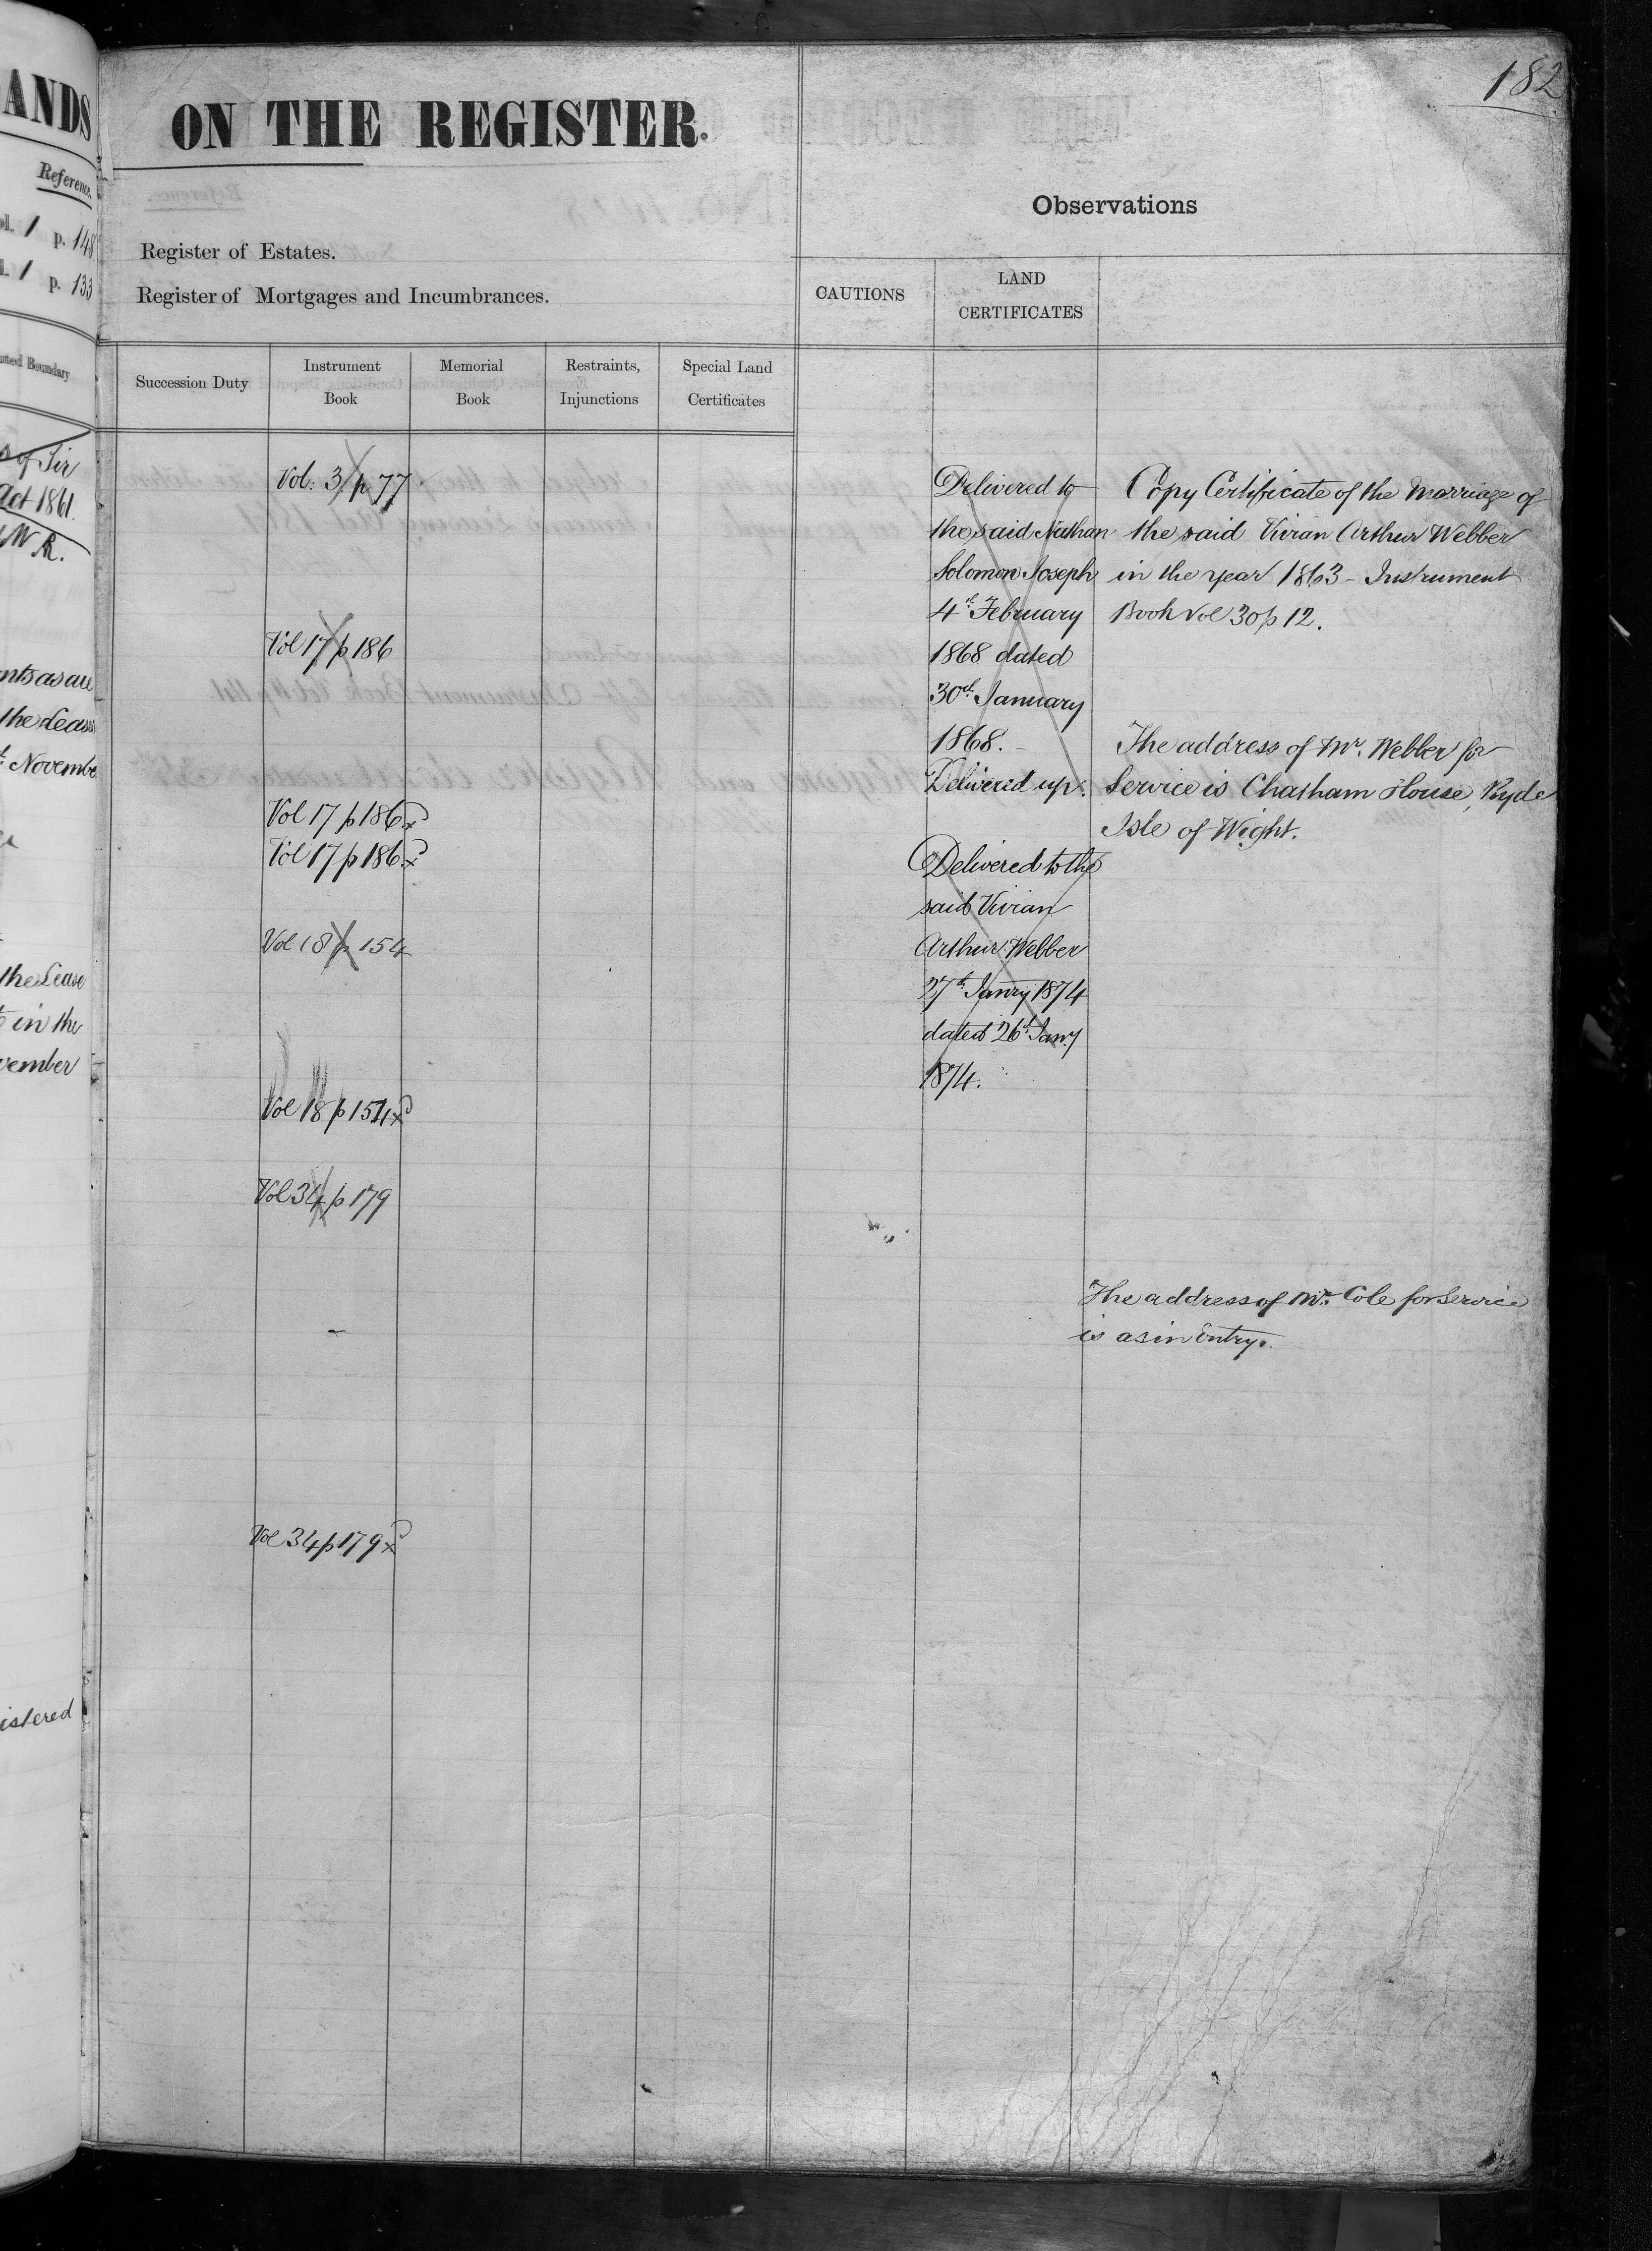 182
ANDS
ON THE REGISTER.
Reference.
Vol. 1 p. 148
Vol. 1 p. 133
Observations
Register of Estates.
Register of Mortgages and Incumbrances.
CAUTIONS
LAND
CERTIFICATES
Boundary
Succession Duty
Instrument
Book
Memorial
Book
Restraints,
Injunctions
Special Land
Certificates
of Sir
Act 1861.
W R.
nts as are
the Lease
November
the Lease
in the
vember
istered
Vol: 3 p 77
Vol 17 p 186
Vol 17 p 186
Vol 17 p 186
Vol 18 p 154
Vol 18 p 154
Vol 34 p 179
Vol 34 p 179
Delivered to
the said Nathan
Solomon Joseph
4th February
1868 dated
30th January
1868.
Delivered up.
Delivered to the
said Vivian
Arthur Webber
27th Janry 1874
dated 26th Jany
1874.
Copy Certificate of the Marriage of
the said Vivian Arthur Webber
in the year 1863 - Instrument
Book Vol 30 p 12.
The address of Mr. Webber for
Service is Chatham House, Ryde
Isle of Wight.
The address of Mr. Cole for Service
is as in Entry.